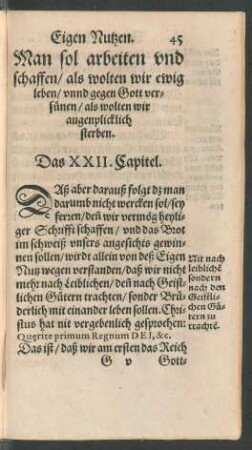 Eigen Nutzen. 45
Man sol arbeiten vnd
schaffen / als wolten wir ewig
leben / vnnd gegen Gott ver-
sünen / als wolten wir
augenplicklich
sterben.
Das XXII. Capitel.
DAß aber darauß folgt dz man
darumb nicht wercken sol / sey
ferren / deñ wir vermög heyli-
ger Schrifft schaffen / vnd das Brot
im schweiß vnsers angesichts gewin-
nen sollen / wirdt allein von deß Eigen
Nutz wegen verstanden / daß wir nicht
mehr nach Leiblichen / deñ nach Geist-
lichen Gütern trachten / sonder Brü-
derlich mit einander leben sollen. Chri-
stus hat nit vergebenlich gesprochen:
Querite primum Regnum DEI, &c.
Das ist / daß wir am ersten das Reich
G v Gott-
Nit nach
leibliche
sondern
nach den
Geistli-
chen Gü-
tern zu
trachtē.